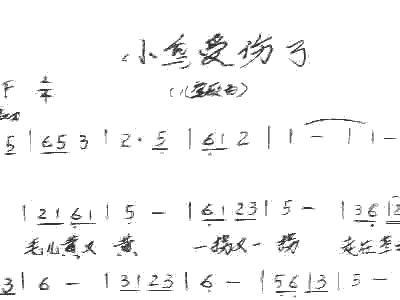 小鸟受伤了
(儿童歌曲)
F 2/4
5 | 6 5 3 | 2 · 5 | 6 1 2 | 1 — | 1 —
| 2 1 6 1 | 5 — | 6 1 2 3 | 5 — | 3 6
毛儿黄又黄 一拐又一拐 走在
3 | 6 — | 3 1 2 3 | 6 — | 5 6 3 | 5 —